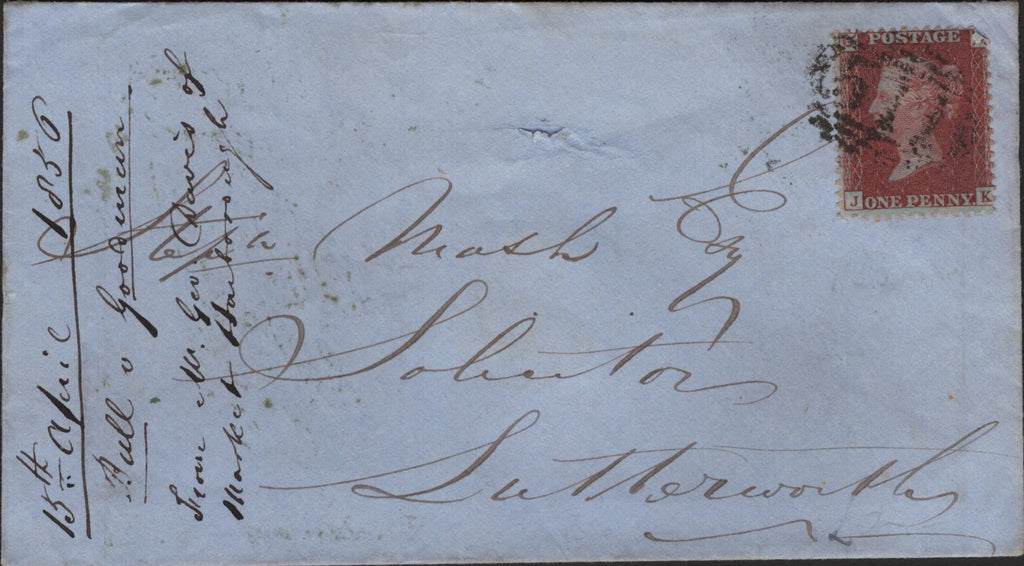 POSTAGE
J ONE PENNY K
Steph Mash Esq
Solicitor
Lutterworth
15th April 1856
Bull v Goodman
From Mr. Geo Davis of
Market Harborough